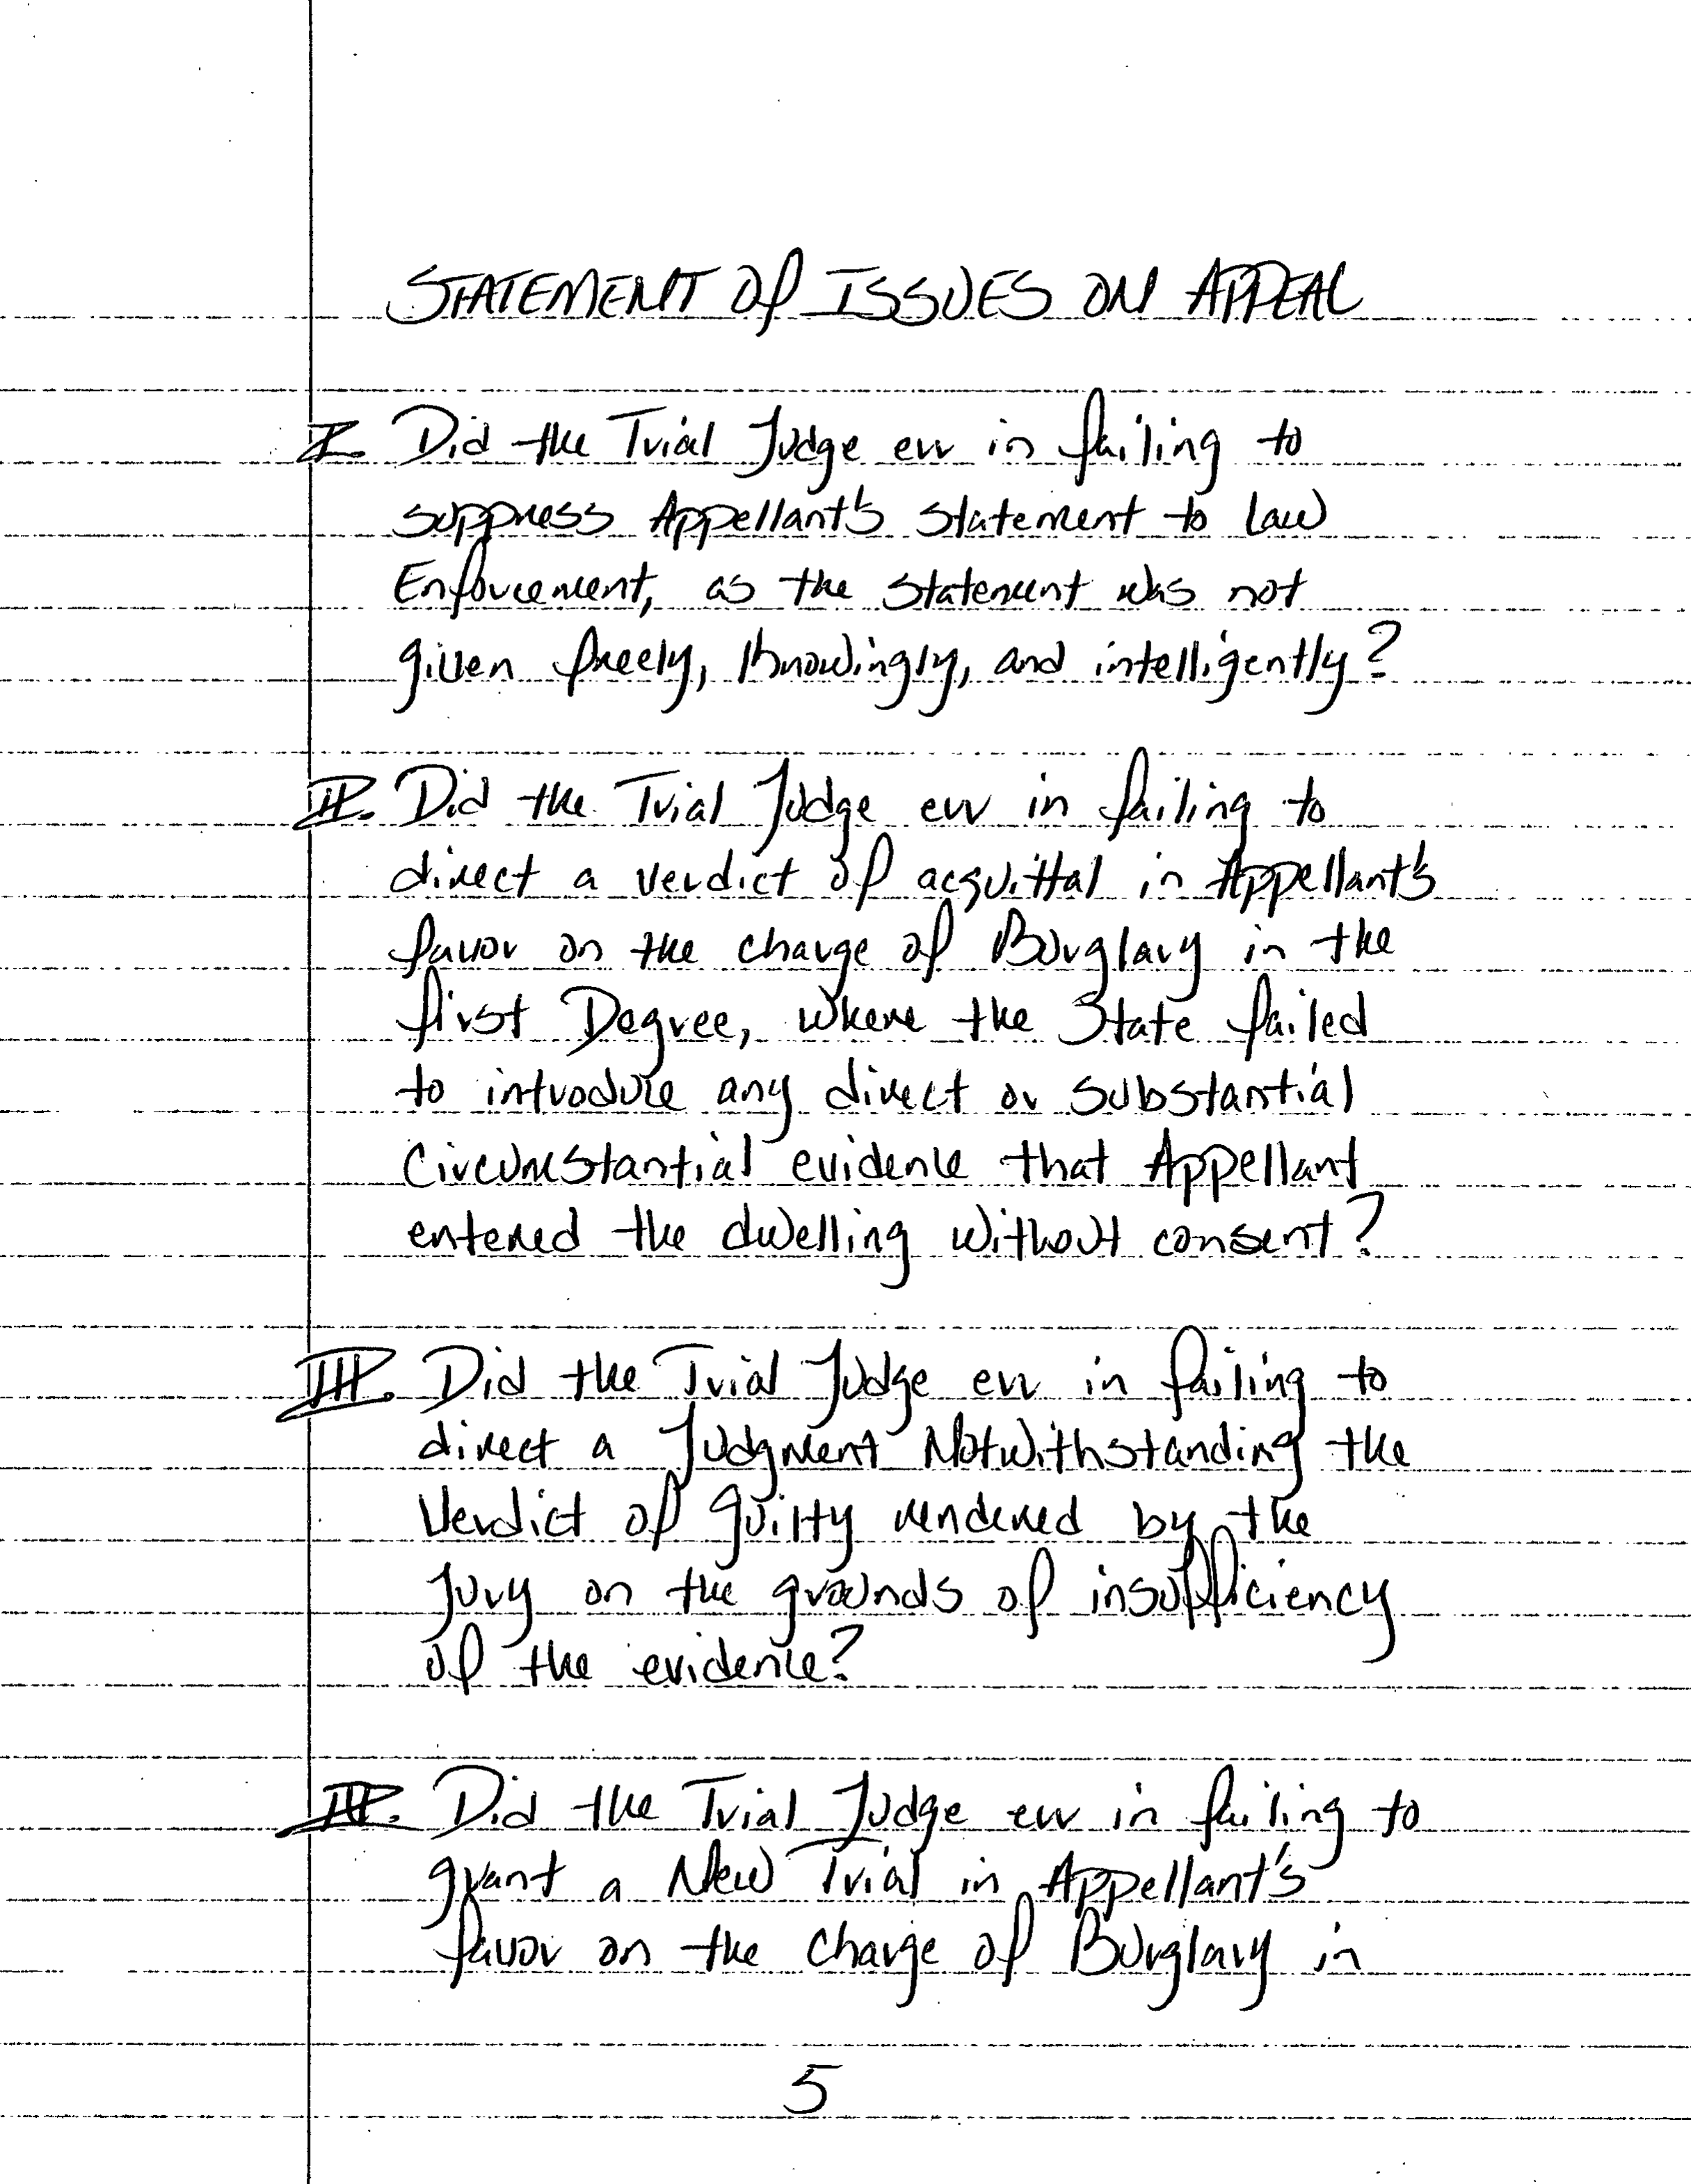 STATEMENT Of ISSUES ON APPEAL
I. Did the Trial Judge err in failing to
suppress Appellant's statement to law
Enforcement, as the statement was not
given freely, knowingly, and intelligently?
II. Did the Trial Judge err in failing to
direct a verdict of acquittal in Appellant's
favor on the charge of Burglary in the
first Degree, where the State failed
to introduce any direct or substantial
Circumstantial evidence that Appellant
entered the dwelling without consent?
III. Did the Trial Judge err in failing to
direct a Judgment Notwithstanding the
Verdict of guilty rendered by the
Jury on the grounds of insufficiency
of the evidence?
IV. Did the Trial Judge err in failing to
grant a New Trial in Appellant's
favor on the charge of Burglary in
5